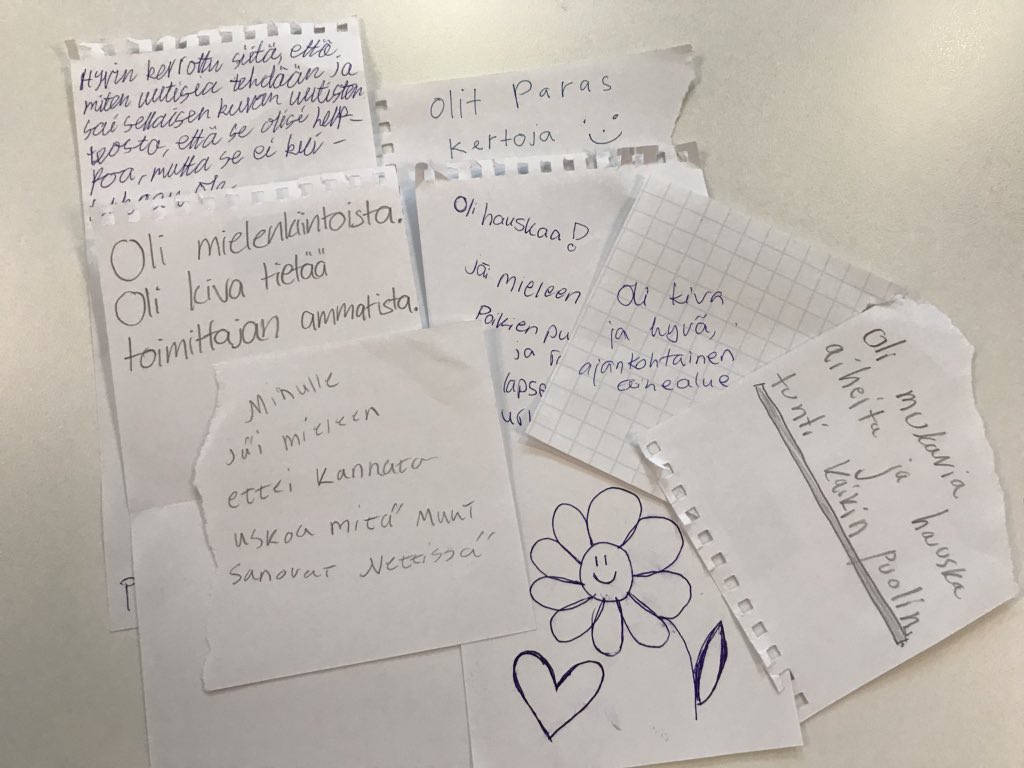 Hyvin kerrottu siitä, että
miten uutisia tehdään ja
sai sellaisen kuvan uutisten
teosta, että se olisi help-
poa, mutta se ei kui-
olit Paras
kertoja
Oli mielenkiintoista.
Oli kiva tietää
toimittajan ammatista.
Oli hauskaa!
Jäi mieleen
Pakien pu
ja
lapse
url
Oli kiva
ja hyvä,
ajankohtainen
aihealue
Minulle
jäi mieleen
ettei kannata
uskoa mitä muut
sanovat Netissä
Oli mukavia
aiheita ja hauska
tunti kaikin puolin